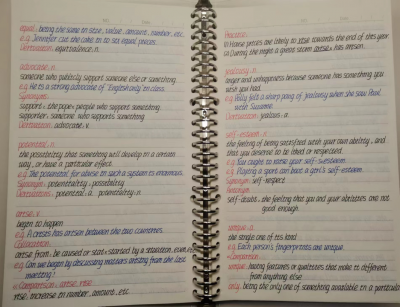 equal. being the same in size, value, amount, number, etc.
e.g. Jennifer cut the cake in to six equal pieces.
Derivation: equivalence. n.
advocate. n.
someone who publicly support someone else or something.
e.g. He is a strong advocate of "English only" in class.
Synonyms:
support. the people who support something.
supporter. someone who supports something
Derivation: advocate. v.
potential. n.
the possibility that something will develop in a certain
way, or have a particular effect
e.g. The potential for abuse in such a system is enormous.
Synonym: potentiality, possibility
Derivations: potential. a. potentiality. n.
arise. v.
begin to happen
e.g. A crisis has arisen between the two countries.
Connotation:
arise from: be caused or start started by a situation, event, etc.
e.g. Can we begin by discussing matters arising from the last
meeting?
* Comparison: arise, rise
rise: increase in number, amount, etc
Practice:
1) House prices are likely to rise towards the end of this year
2) During the night a great storm has arisen.
jealousy. n.
anger and unhappiness because someone has something you
wish you had.
e.g. Polly felt a sharp pang of jealousy when she saw Paul
with Suzanne.
Derivation: jealous. a.
self-esteem. n.
the feeling of being satisfied with your own ability, and
that you deserve to be liked or respected.
e.g. You ought to raise your self-esteem.
e.g. Playing a sport can boost a girl's self-esteem.
Synonym: self-respect
Antonym:
self-doubt. the feeling that you and your abilities are not
good enough.
unique. a.
the single one of its kind
e.g. Each person's fingerprints are unique.
* Comparison:
unique: having features or qualities that make it different
from anything else
only: being the only one of something available in a particular